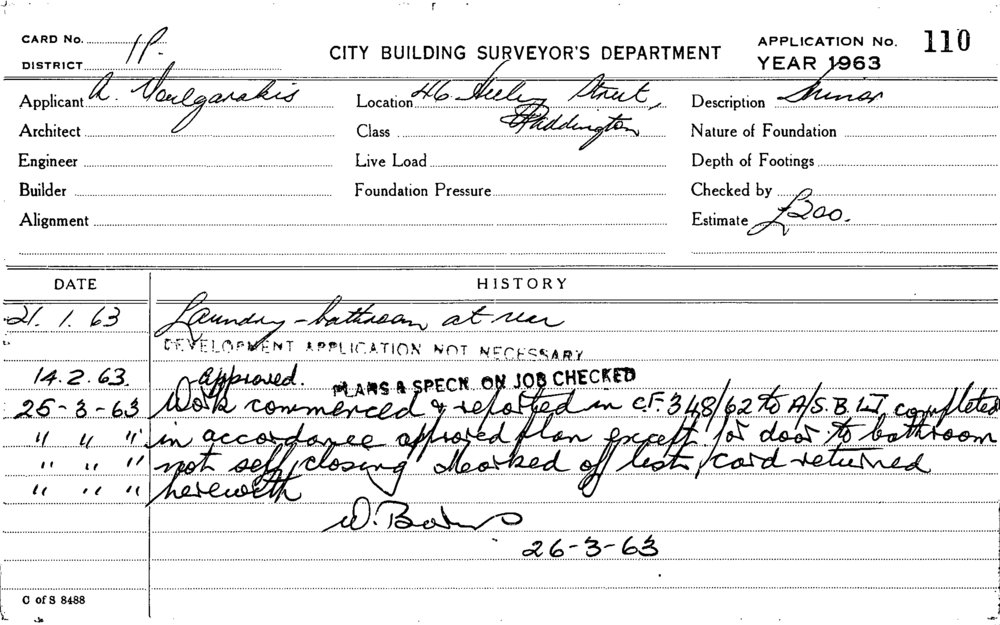 CARD No.
1P.
DISTRICT
CITY BUILDING SURVEYOR'S DEPARTMENT
APPLICATION No. 110
YEAR 1963
Applicant A. Voulgarakis
Location 46 Heeley Street,
Paddington
Description Minor
Architect
Class
Nature of Foundation
Engineer
Live Load
Depth of Footings
Builder
Foundation Pressure
Checked by
Alignment
Estimate £200.
DATE HISTORY
21. 1. 63 Laundry - bathroom at rear
DEVELOPMENT APPLICATION NOT NECESSARY
14.2.63. Approved. PLANS & SPECN. ON JOB CHECKED
25-3-63 Work commenced & reported in C.F. 348/62 to A/S.B. completed
" " " in accordance approved plan except for door to bathroom
" " " not self closing Marked off list, card returned
" " " herewith
26-3-63
C of S 8488